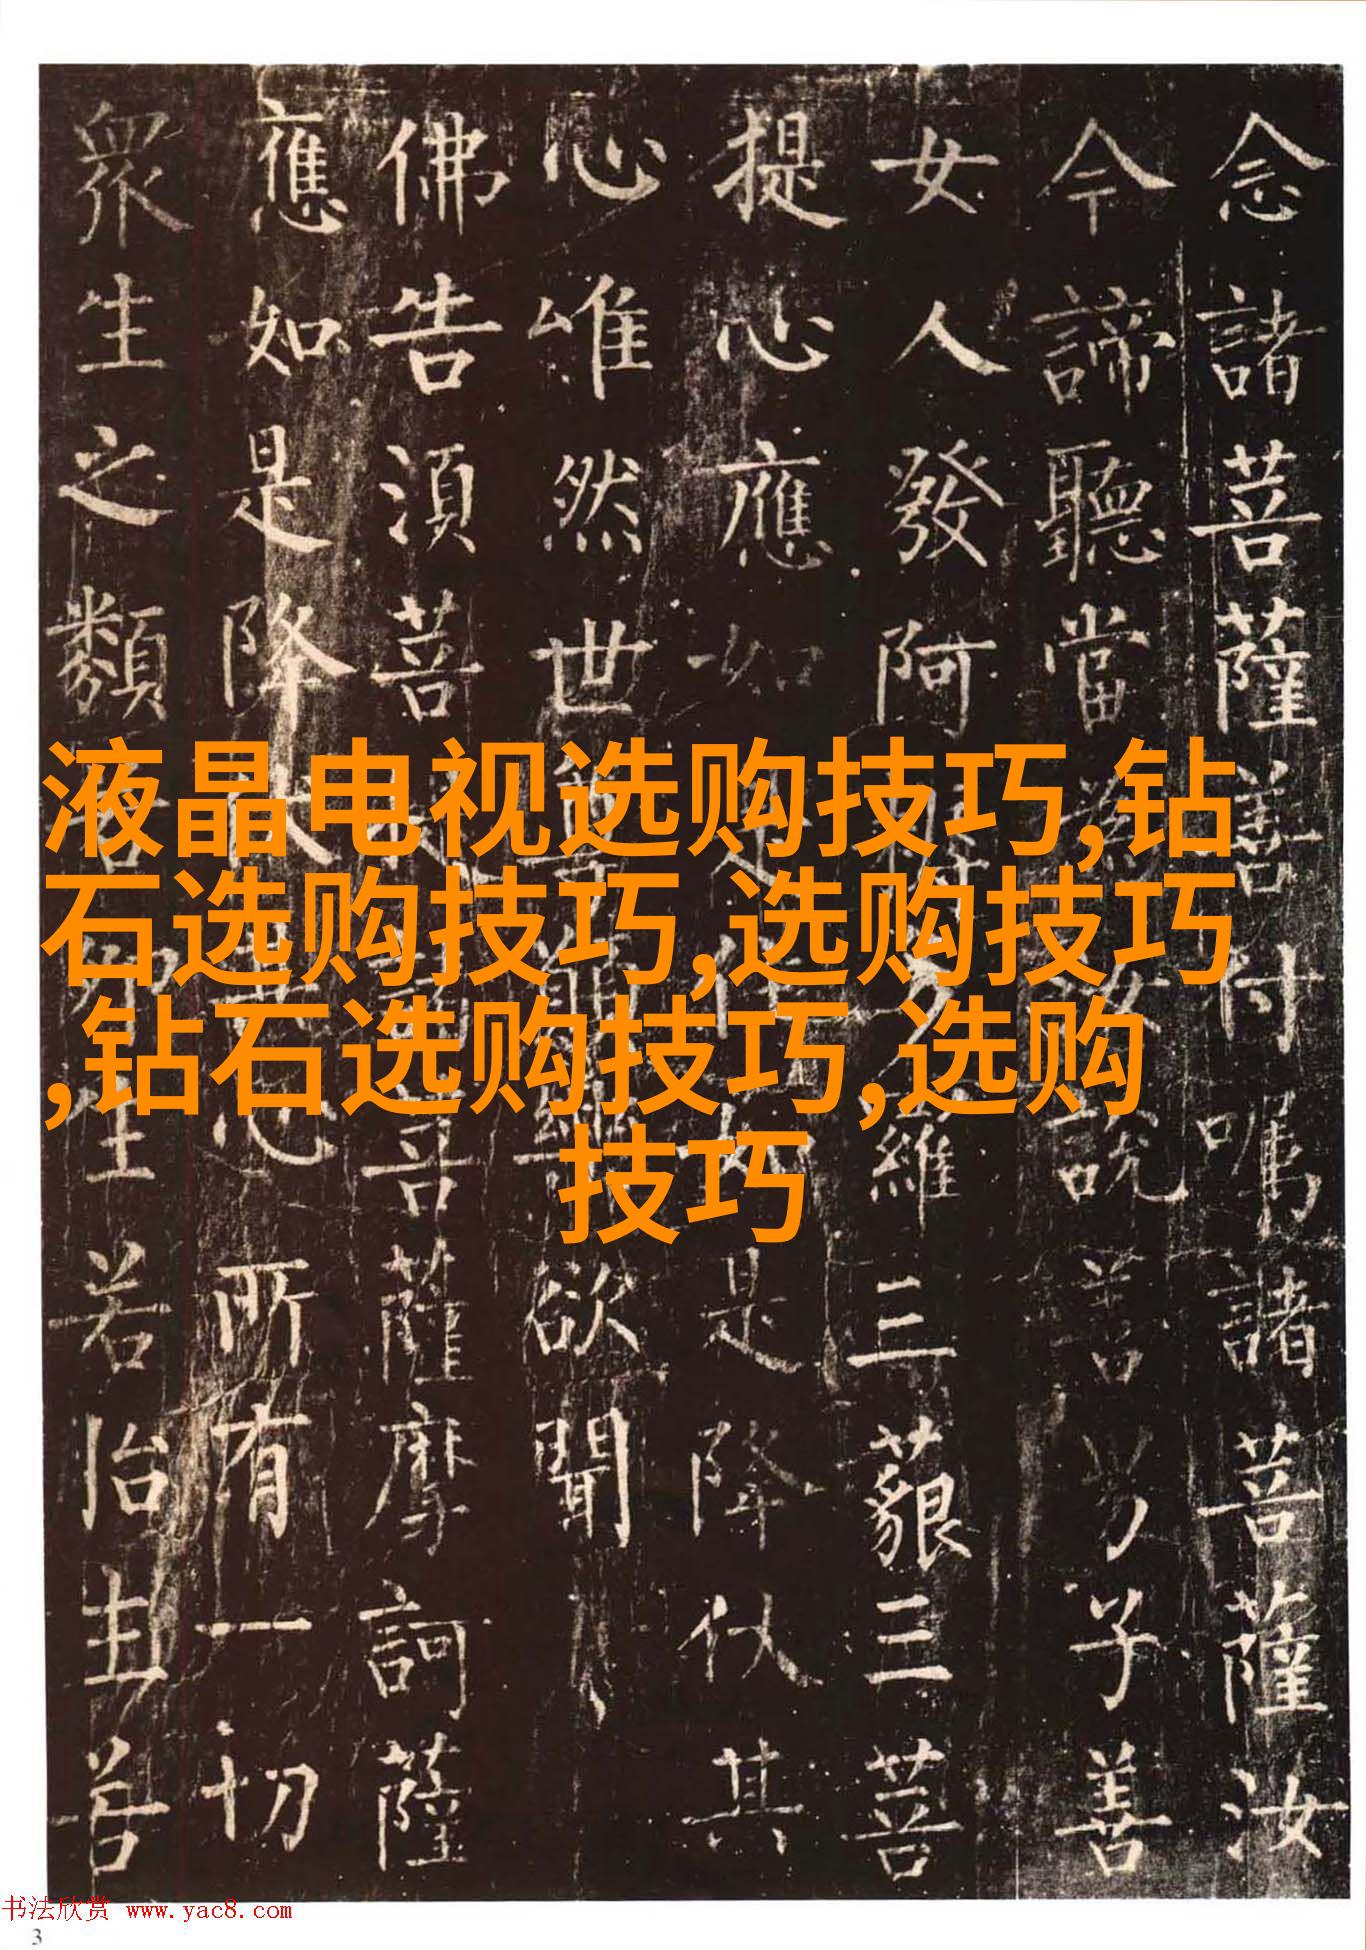 念諸菩薩善付囑諸菩薩汝
今諦聽當為汝說善男子善
女人發阿羅三藐三菩
提心應如是降伏其
心唯然世欲聞
佛告須菩菩薩摩訶薩
應如是降心所有一切
眾生之類生若胎生若
液晶电视选购技巧,钻
石选购技巧,选购技巧
,钻石选购技巧,选购
技巧
书法欣赏 www.yac8.com
3